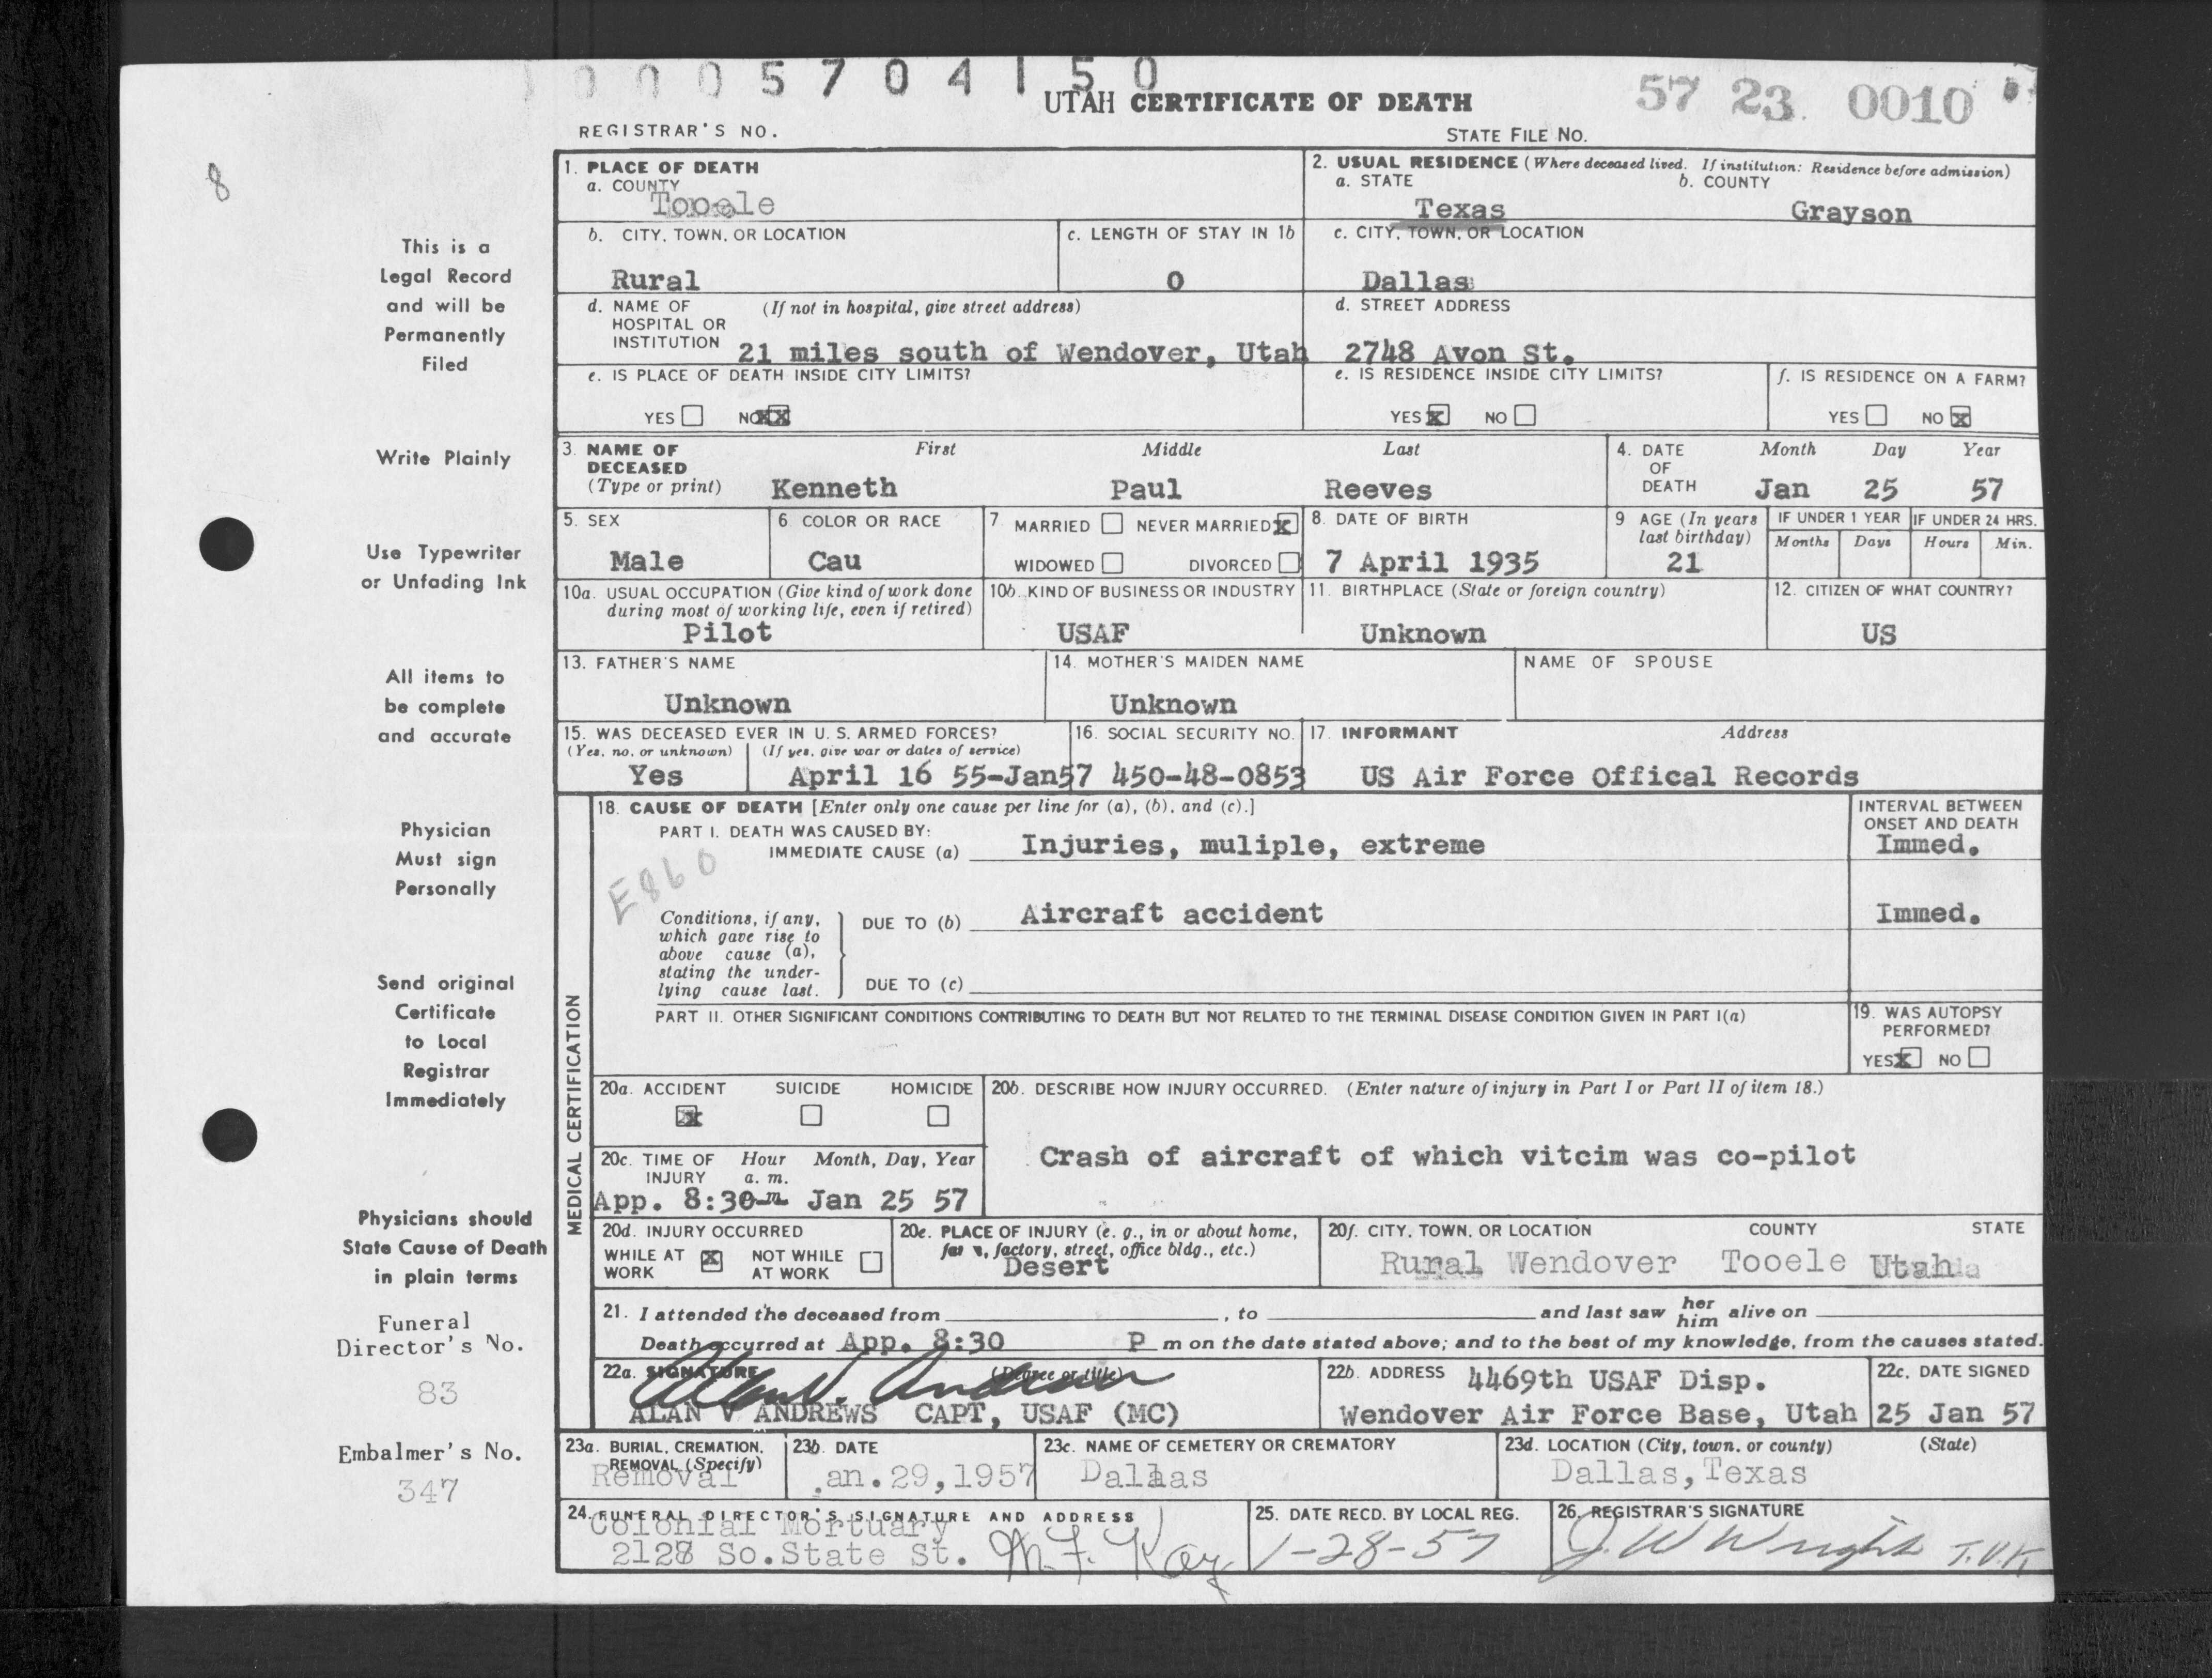 1 0 0 0 5 7 0 4 1 5 0
UTAH CERTIFICATE OF DEATH
57 23 0010
REGISTRAR'S NO.
STATE FILE NO.
8
This is a
Legal Record
and will be
Permanently
Filed
Write Plainly
Use Typewriter
or Unfading Ink
All items to
be complete
and accurate
Physician
Must sign
Personally
Send original
Certificate
to Local
Registrar
Immediately
Physicians should
State Cause of Death
in plain terms
Funeral
Director's No.
83
Embalmer's No.
347
1. PLACE OF DEATH
a. COUNTY
Tooele
2. USUAL RESIDENCE (Where deceased lived. If institution: Residence before admission)
a. STATE b. COUNTY
Texas Grayson
b. CITY, TOWN, OR LOCATION
Rural
c. LENGTH OF STAY IN 1b
0
c. CITY, TOWN, OR LOCATION
Dallas
d. NAME OF (If not in hospital, give street address)
HOSPITAL OR
INSTITUTION 21 miles south of Wendover, Utah
d. STREET ADDRESS
2748 Avon St.
e. IS PLACE OF DEATH INSIDE CITY LIMITS?
YES NO XX
e. IS RESIDENCE INSIDE CITY LIMITS?
YES X NO
f. IS RESIDENCE ON A FARM?
YES NO X
3. NAME OF First Middle Last
DECEASED
(Type or print) Kenneth Paul Reeves
4. DATE Month Day Year
OF
DEATH Jan 25 57
5. SEX
Male
6 COLOR OR RACE
Cau
7 MARRIED NEVER MARRIED X
WIDOWED DIVORCED
8. DATE OF BIRTH
7 April 1935
9 AGE (In years
last birthday)
21
IF UNDER 1 YEAR IF UNDER 24 HRS.
Months Days Hours Min.
10a. USUAL OCCUPATION (Give kind of work done
during most of working life, even if retired)
Pilot
10b. KIND OF BUSINESS OR INDUSTRY
USAF
11. BIRTHPLACE (State or foreign country)
Unknown
12. CITIZEN OF WHAT COUNTRY?
US
13. FATHER'S NAME
Unknown
14. MOTHER'S MAIDEN NAME
Unknown
NAME OF SPOUSE
15. WAS DECEASED EVER IN U. S. ARMED FORCES?
(Yes, no, or unknown) (If yes, give war or dates of service)
Yes April 16 55-Jan57
16. SOCIAL SECURITY NO.
450-48-0853
17. INFORMANT Address
US Air Force Offical Records
MEDICAL CERTIFICATION
18. CAUSE OF DEATH [Enter only one cause per line for (a), (b), and (c).]
PART I. DEATH WAS CAUSED BY:
IMMEDIATE CAUSE (a) Injuries, muliple, extreme
INTERVAL BETWEEN
ONSET AND DEATH
Immed.
E860
Conditions, if any,
which gave rise to
above cause (a),
stating the under-
lying cause last.
DUE TO (b) Aircraft accident
Immed.
DUE TO (c)
PART II. OTHER SIGNIFICANT CONDITIONS CONTRIBUTING TO DEATH BUT NOT RELATED TO THE TERMINAL DISEASE CONDITION GIVEN IN PART I(a)
19. WAS AUTOPSY
PERFORMED?
YES X NO
20a. ACCIDENT SUICIDE HOMICIDE
X
20b. DESCRIBE HOW INJURY OCCURRED. (Enter nature of injury in Part I or Part II of item 18.)
Crash of aircraft of which vitcim was co-pilot
20c. TIME OF Hour Month, Day, Year
INJURY a. m.
App. 8:30 m Jan 25 57
20d. INJURY OCCURRED
WHILE AT X NOT WHILE
WORK AT WORK
20e. PLACE OF INJURY (e. g., in or about home,
factory, street, office bldg., etc.)
Desert
20f. CITY, TOWN, OR LOCATION COUNTY STATE
Rural Wendover Tooele Utah
21. I attended the deceased from , to and last saw her him alive on
Death occurred at App. 8:30 P m on the date stated above; and to the best of my knowledge, from the causes stated.
22a. SIGNATURE (Degree or title)
Alan V. Andrews
ALAN V ANDREWS CAPT, USAF (MC)
22b. ADDRESS 4469th USAF Disp.
Wendover Air Force Base, Utah
22c. DATE SIGNED
25 Jan 57
23a. BURIAL, CREMATION,
REMOVAL (Specify)
Removal
23b. DATE
an.29,1957
23c. NAME OF CEMETERY OR CREMATORY
Dallas
23d. LOCATION (City, town, or county) (State)
Dallas, Texas
24. FUNERAL DIRECTOR'S SIGNATURE AND ADDRESS
Colonial Mortuary
2128 So.State St. M. F. Kay
25. DATE RECD. BY LOCAL REG.
1-28-57
26. REGISTRAR'S SIGNATURE
J. W Wright T.V.K